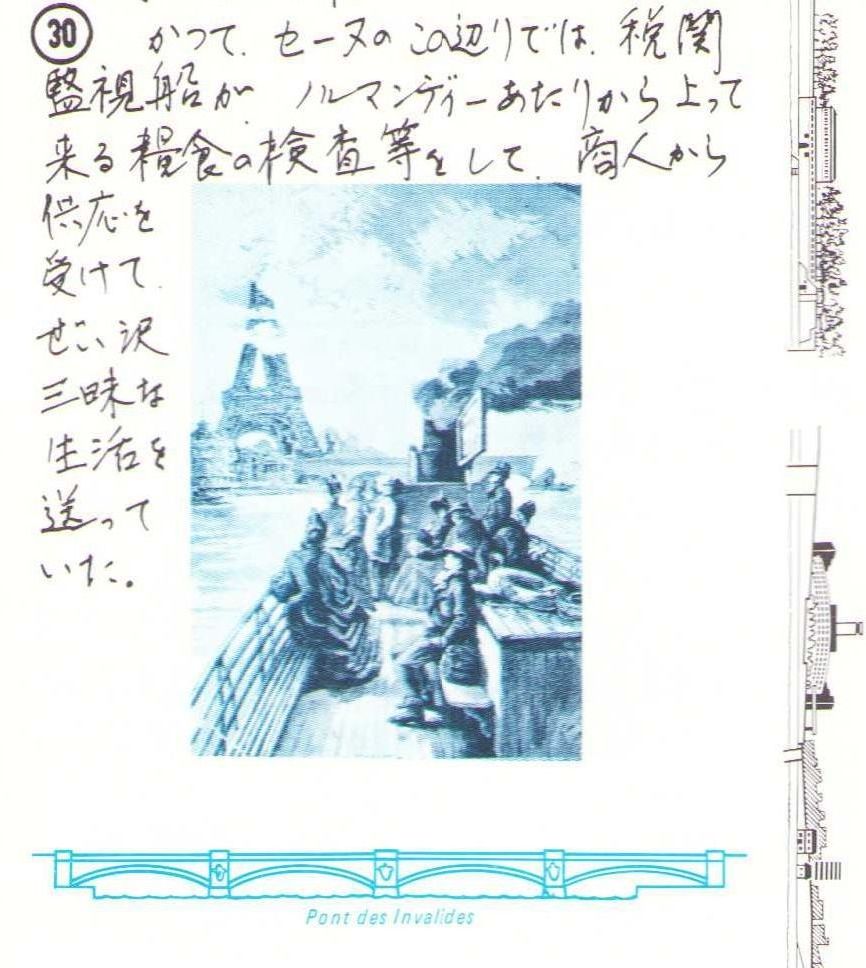 30 かつて、セーヌのこの辺りでは、税関
監視船が、ノルマンディーあたりから上って
来る糧食の検査等をして、商人から
供応を
受けて、
ぜいい沢
三昧な
生活を
送って
いた。
Pont des Invalides